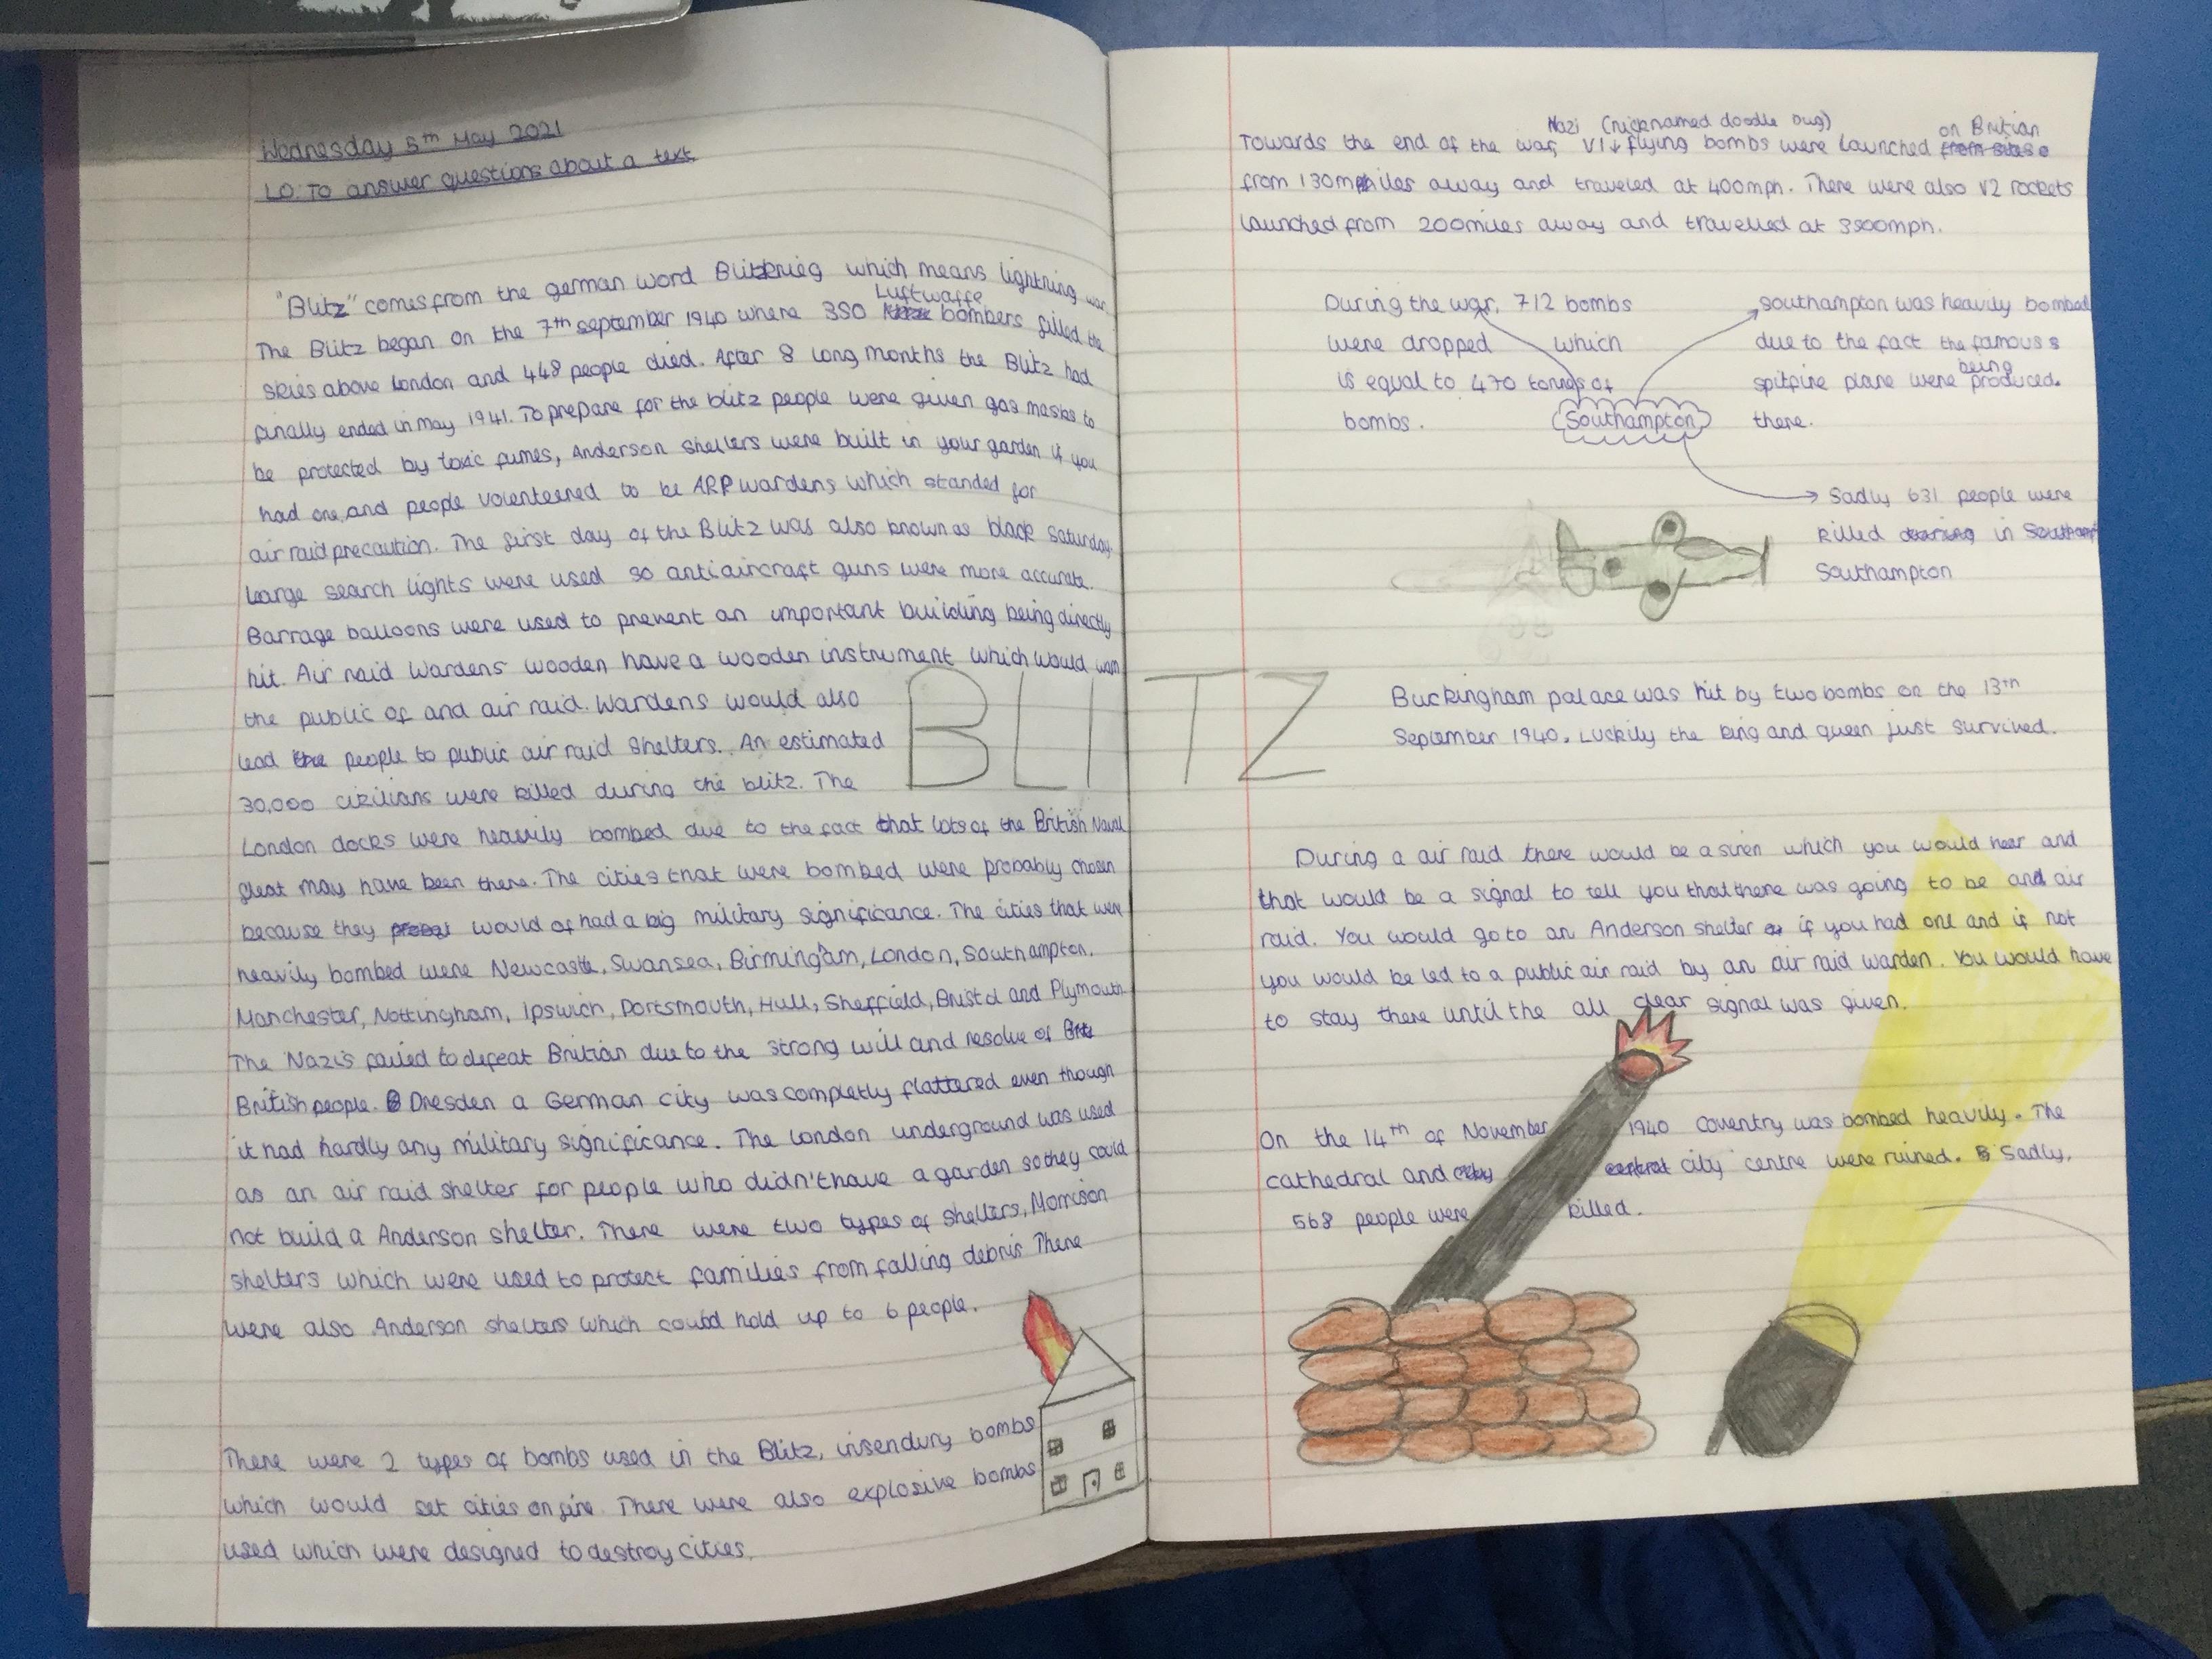 Wednesday 5th May 2021
LO: To answer questions about a text
"Blitz" comes from the german word Blitzkrieg which means lightning war.
The Blitz began on the 7th september 1940 where 350 Luftwaffe bombers filled the
skies above London and 448 people died. After 8 long months the Blitz had
finally ended in may 1941. To prepare for the blitz people were given gas masks to
be protected by toxic fumes, Anderson shelters were built in your garden if you
had one, and people volenteered to be ARP wardens which standed for
air raid precaution. The first day of the Blitz was also known as black saturday.
Large search lights were used so antiaircraft guns were more accurate.
Barrage balloons were used to prevent an important building being directly
hit. Air raid wardens wooden have a wooden instrument which would warn
the public of and air raid. Wardens would also
lead the people to public air raid shelters. An estimated
30,000 civilians were killed during the blitz. The
London docks were heavily bombed due to the fact that lots of the British Naval
fleat may have been there. The cities that were bombed were probably chosen
because they would of had a big military significance. The cities that were
heavily bombed were Newcastle, Swansea, Birmingham, London, Southampton,
Manchester, Nottingham, Ipswich, Portsmouth, Hull, Sheffield, Bristol and Plymouth.
The Nazi's failed to defeat Britian due to the strong will and resolve of
British people. Dresden a German city was completly flattered even though
it had hardly any military significance. The london underground was used
as an air raid shelter for people who didn't have a garden so they could
not build a Anderson shelter. There were two types of shelters, Morrison
shelters which were used to protect families from falling debris There
were also Anderson shelters which could hold up to 6 people.
There were 2 types of bombs used in the Blitz, insendury bombs
which would set cities on fire. There were also explosive bombs
used which were designed to destroy cities.
BLITZ
Towards the end of the war, Nazi V1 (nicknamed doodle bug) flying bombs were launched on Britian
from 130miles away and traveled at 400mph. There were also V2 rockets
launched from 200miles away and travelled at 3500mph.
During the war, 712 bombs
were dropped which
is equal to 470 tonnes of
bombs.
Southampton
southampton was heavily bombed
due to the fact the famous
spitfire plane were being produced
there.
Sadly 631 people were
killed in
Southampton
Buckingham palace was hit by two bombs on the 13th
September 1940. Luckily the king and queen just survived.
During a air raid there would be a siren which you would hear and
that would be a signal to tell you that there was going to be and air
raid. You would go to an Anderson shelter if you had one and if not
you would be led to a public air raid by an air raid warden. You would have
to stay there until the all clear signal was given.
On the 14th of November 1940 Coventry was bombed heavily. The
cathedral and city centre were ruined. Sadly,
568 people were killed.